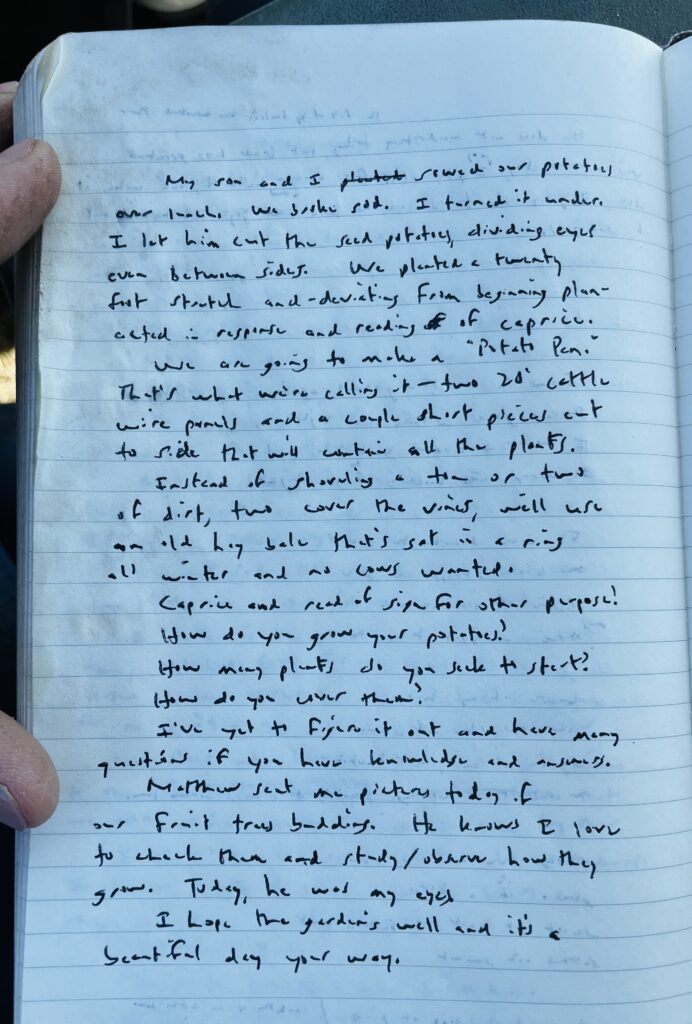 My son and I planted sowed our potatoes
over lunch. We broke sod. I turned it under.
I let him cut the seed potatoes, dividing eyes
even between sides. We planted a twenty
foot stretch and - deviating from beginning plan -
acted in response and reading of caprice.
We are going to make a "Potato Pen."
That's what we're calling it — two 20' cattle
wire panels and a couple short pieces cut
to side that will contain all the plants.
Instead of shoveling a ton or two
of dirt, two cover the vines, we'll use
an old hay bale that's sat in a ring
all winter and no cows wanted.
Caprice and read of sign for other purpose!
How do you grow your potatoes?
How many plants do you seek to start?
How do you cover them?
I've yet to figure it out and have many
questions if you have knowledge and answers.
Matthew sent me pictures today of
our fruit trees budding. He knows I love
to check them and study/observe how they
grow. Today, he was my eyes
I hope the garden's well and it's a
beautiful day your way.